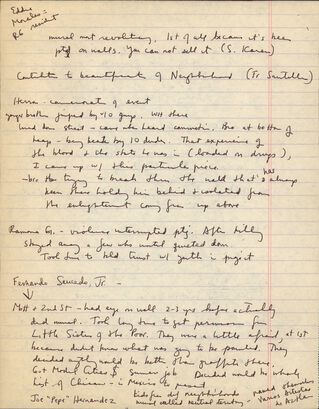 Eddie
Morales =
RG resident
mural not revolutionary, 1st of all because it's been
ptg on walls. You can not sell it (S. Karen)
Contribute to beautification of Neighborhood (Fr Santillan)
Herron - commemorate of event
younger brother jumped by 10 guys. Was there
lived down street - came who heard commotion. Bro at bottom of
heap - being beaten by 10 dudes. That experience of
the blood & the state he was in (loaded on drugs),
I came up w/ this particular piece.
- bro Has trying to break thru the wall that's always
has
been there holding him behind & isolated from
the enlightenment coming from up above
Ramona Gs. - violence interrupted ptg. After killing
stayed away a few wks until quieted down.
Took time to build trust w/ youth in project
Fernando Saucedo, Jr -
Mott & 2nd St - had eye on wall 2-3 yrs before actually
did mural. Took long time to get permission from
Little Sisters of the Poor. They were a little afraid, at 1st
because didn't know what was going to be painted. They
decided anything would be better than graffiti there.
Got Model Cities $ summer job Decided would do wholly
hist. of Chicano - in Mexico to present
Joe "Pepe" Hernandez
kids from dif neighborhoods
mural called neutral territory -